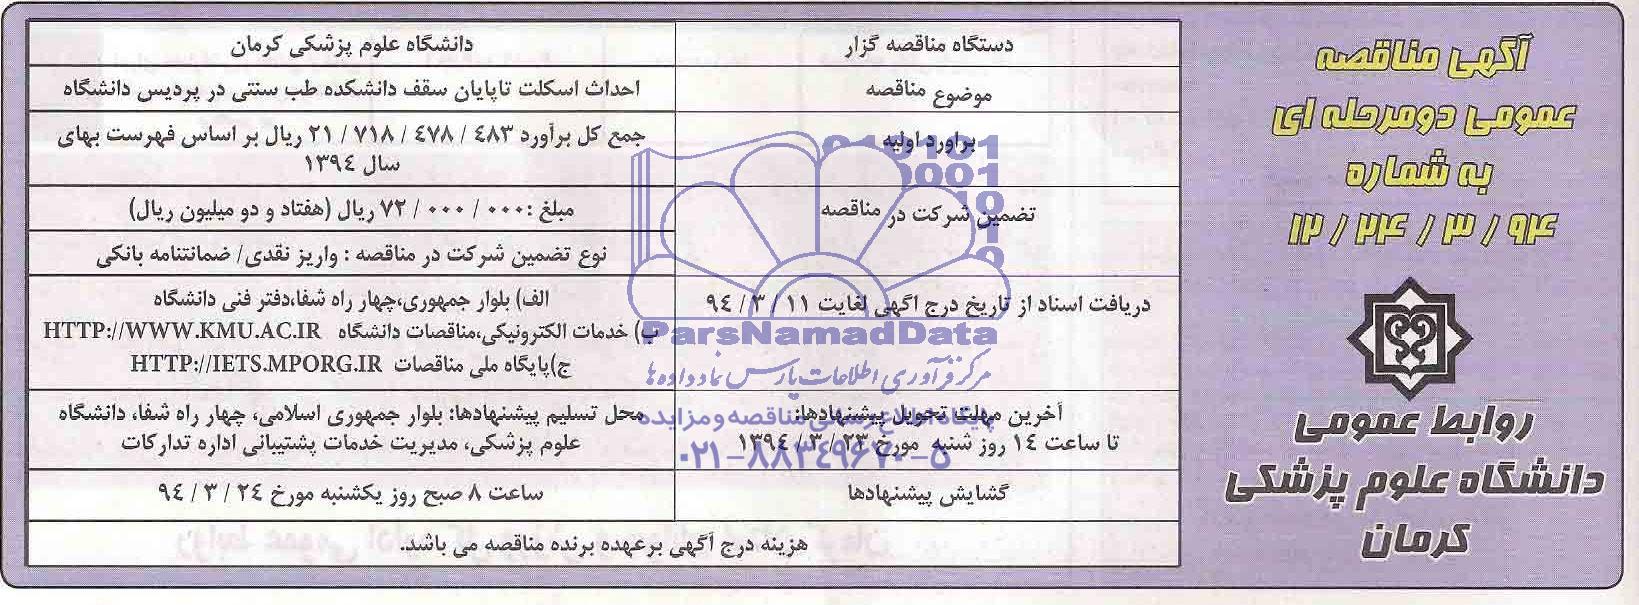 آگهی مناقصه
عمومی دومرحله ای
به شماره
۱۲ / ۲۴ / ۳ / ۹۴
روابط عمومی
دانشگاه علوم پزشکی
کرمان
دستگاه مناقصه گزار
دانشگاه علوم پزشکی کرمان
موضوع مناقصه
احداث اسکلت تاپایان سقف دانشکده طب سنتی در پردیس دانشگاه
براورد اولیه
جمع کل برآورد ۴۸۳ / ۴۷۸ / ۷۱۸ / ۲۱ ریال بر اساس فهرست بهای
سال ۱۳۹٤
تضمین شرکت در مناقصه
مبلغ :۰۰۰ / ۰۰۰ / ۷۲ ریال (هفتاد و دو میلیون ریال)
نوع تضمین شرکت در مناقصه : واریز نقدی/ ضمانتنامه بانکی
دریافت اسناد از تاریخ درج اگهی لغایت ۱۱ / ۳ / ۹٤
الف) بلوار جمهوری،چهار راه شفا،دفتر فنی دانشگاه
ب) خدمات الکترونیکی،مناقصات دانشگاه HTTP://WWW.KMU.AC.IR
ج)پایگاه ملی مناقصات HTTP://IETS.MPORG.IR
آخرین مهلت تحویل پیشنهادها:
تا ساعت ۱٤ روز شنبه مورخ ۲۳ / ۳ / ۱۳۹٤
محل تسلیم پیشنهادها: بلوار جمهوری اسلامی، چهار راه شفا، دانشگاه
علوم پزشکی، مدیریت خدمات پشتیبانی اداره تدارکات
گشایش پیشنهادها
ساعت ۸ صبح روز یکشنبه مورخ ۲٤ / ۳ / ۹٤
هزینه درج آگهی برعهده برنده مناقصه می باشد.
ParsNamadData
مرکز فرآوری اطلاعات پارس نماد داده ها
پایگاه اطلاع رسانی مناقصه و مزایده
۰۲۱-۸۸۳٤۹۶۷۰-۵